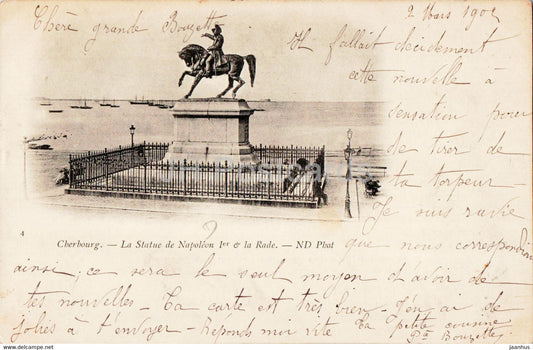 2 Mars 1902
Chère grande Bouzett
Il fallait décidement
cette nouvelle à
sensation pour
de tirer de
ta torpeur -
Je suis ravie
que nous correspondions
4
Cherbourg. — La Statue de Napoléon Ier & la Rade. — ND Phot
ainsi, ce sera le seul moyen d'avoir de
tes nouvelles - Ta carte est très bien - J'en ai de
jolies à t'envoyer - Réponds moi vite
Ta petite cousine
Bouzette
jauhus / www.delcampe.net